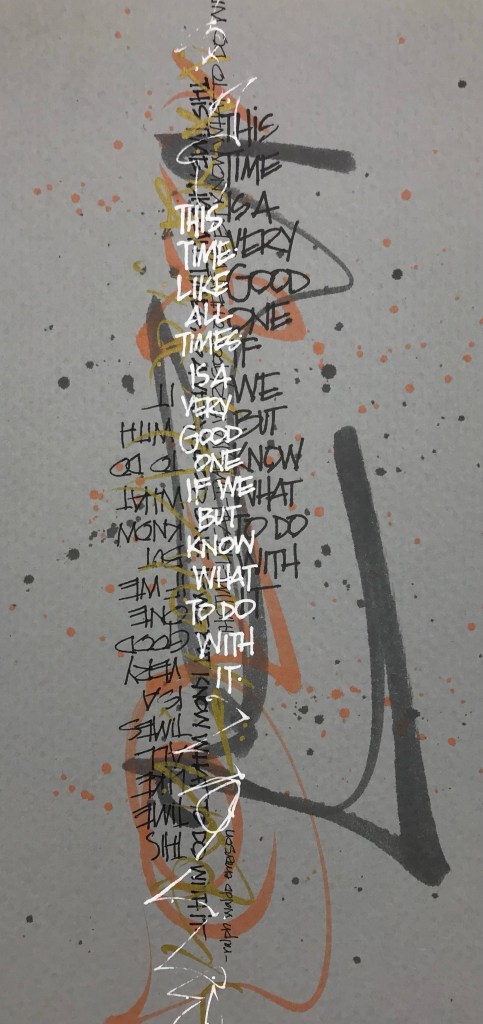 THIS
TIME
LIKE
ALL
TIMES
IS A
VERY
GOOD
ONE
IF WE
BUT
KNOW
WHAT
TO DO
WITH
IT.
THIS
TIME
IS A
VERY
GOOD
ONE
IF
WE
BUT
KNOW
WHAT
TO DO
WITH
THIS
TIME
LIKE
ALL
TIMES
IS A
VERY
GOOD
ONE
IF WE
BUT
KNOW
WHAT
TO DO
WITH
IT
KNOW WHAT TO DO WITH IT
-ralph waldo emerson